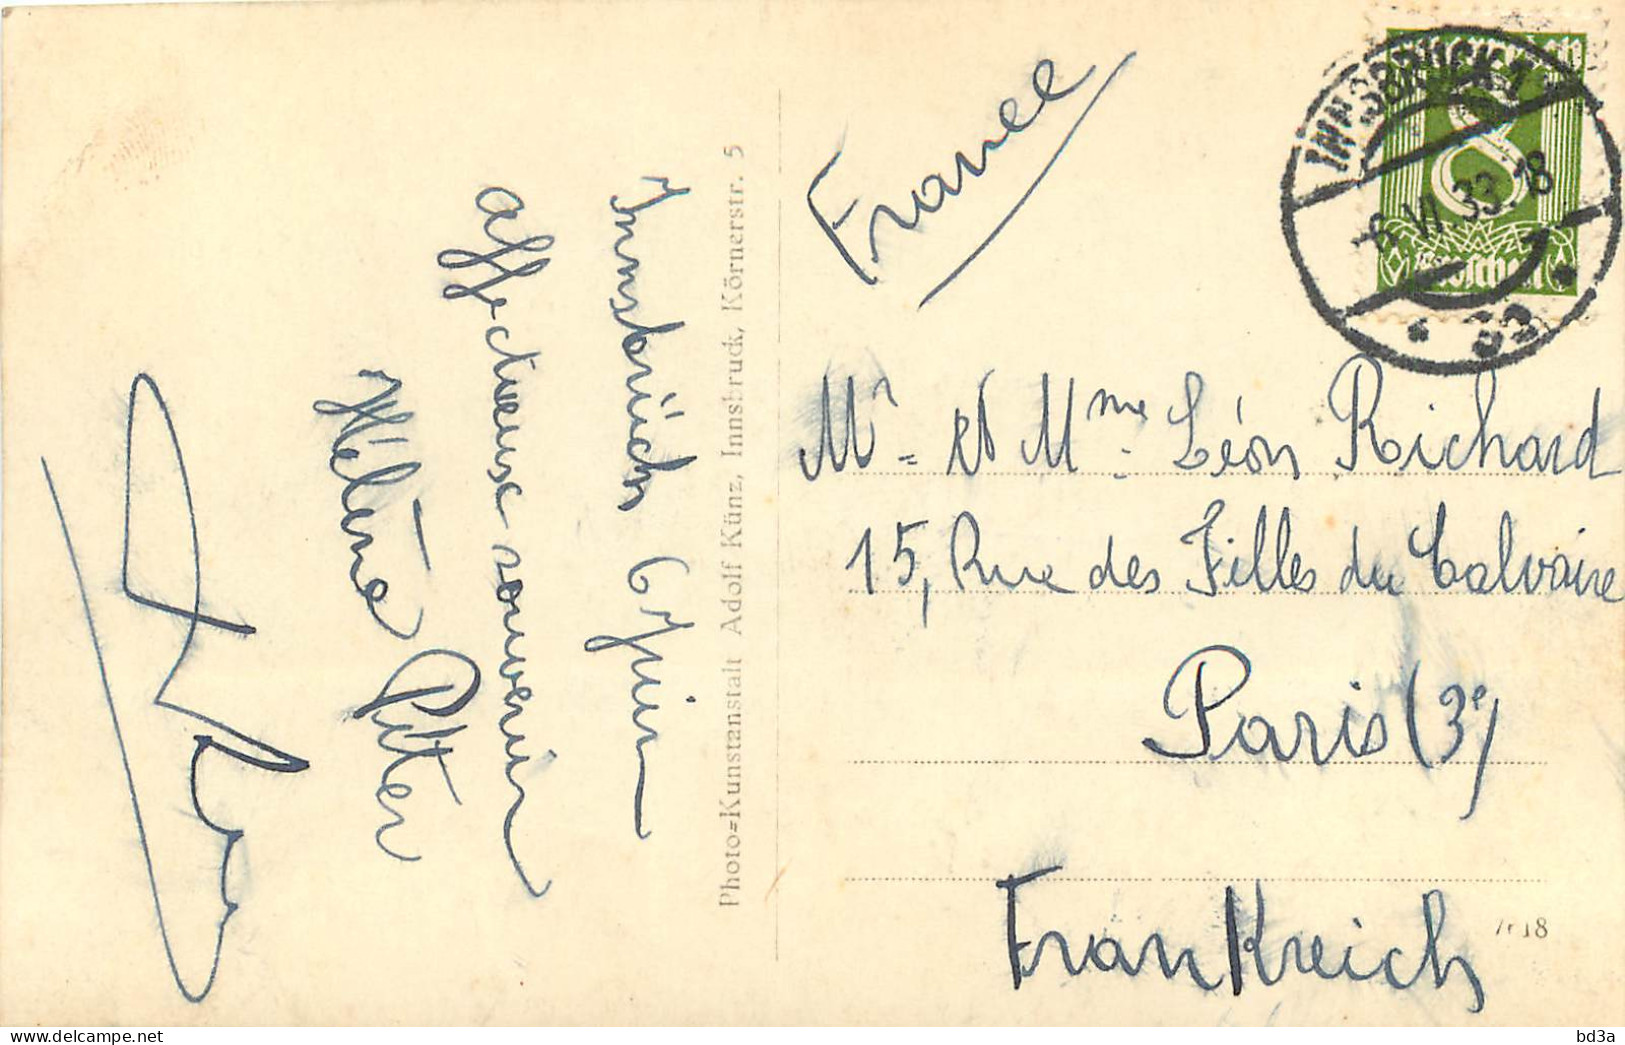 Innsbrück 6 Juin
affectueux souvenir
Hélène Piter
Photo=Kunstanstalt Adolf Künz, Innsbruck, Körnerstr. 5
France
INNSBRUCK 1
6.VI.33.18
8
Groschen
Mr et Mme Léon Richard
15, Rue des Filles du Calvaire
Paris (3e)
FranKreich
bd3a